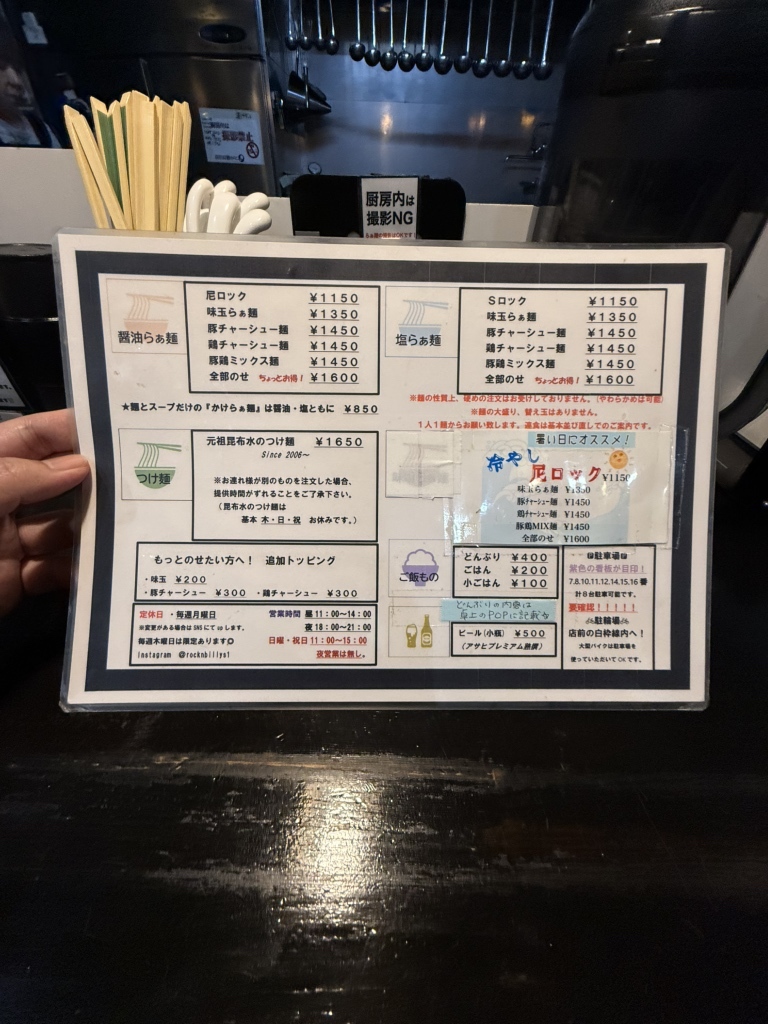 厨房内は
撮影NG
醤油らぁ麺
尼ロック ¥1150
味玉らぁ麺 ¥1350
豚チャーシュー麺 ¥1450
鶏チャーシュー麺 ¥1450
豚鶏ミックス麺 ¥1450
全部のせ ちょっとお得! ¥1600
塩らぁ麺
Sロック ¥1150
味玉らぁ麺 ¥1350
豚チャーシュー麺 ¥1450
鶏チャーシュー麺 ¥1450
豚鶏ミックス麺 ¥1450
全部のせ ちょっとお得! ¥1600
★麺とスープだけの『かけらぁ麺』は醤油・塩ともに ¥850
※麺の性質上、硬めの注文はお受けしておりません。(やわらかめは可能)
※麺の大盛り、替え玉はありません。
1人1麺からお願い致します。連食は基本並び直しでのご案内です。
つけ麺
元祖昆布水のつけ麺 ¥1650
Since 2006~
※お連れ様が別のものを注文した場合、
提供時間がずれることをご了承下さい。
(昆布水のつけ麺は
基本 木・日・祝 お休みです。)
暑い日にオススメ!
冷やし
尼ロック ¥1150
味玉らぁ麺 ¥1350
豚チャーシュー麺 ¥1450
鶏チャーシュー麺 ¥1450
豚鶏MIX麺 ¥1450
全部のせ ¥1600
もっとのせたい方へ! 追加トッピング
・味玉 ¥200
・豚チャーシュー ¥300 ・鶏チャーシュー ¥300
ご飯もの
どんぶり ¥400
ごはん ¥200
小ごはん ¥100
どんぶりの内容は
卓上のPOPに記載
ビール(小瓶) ¥500
(アサヒプレミアム熟撰)
定休日 ・毎週月曜日
※変更がある場合は SNS にて up します。
毎週木曜日は限定あります
Instagram @rocknbillys1
営業時間 昼 11:00〜14:00
夜 18:00〜21:00
日曜・祝日 11:00〜15:00
夜営業は無し。
駐車場
紫色の看板が目印!
7.8.10.11.12.14.15.16 番
計8台駐車可能です。
要確認!!!!!
駐輪場
店前の白枠線内へ!
大型バイクは駐車場を
使っていただいて OK です。